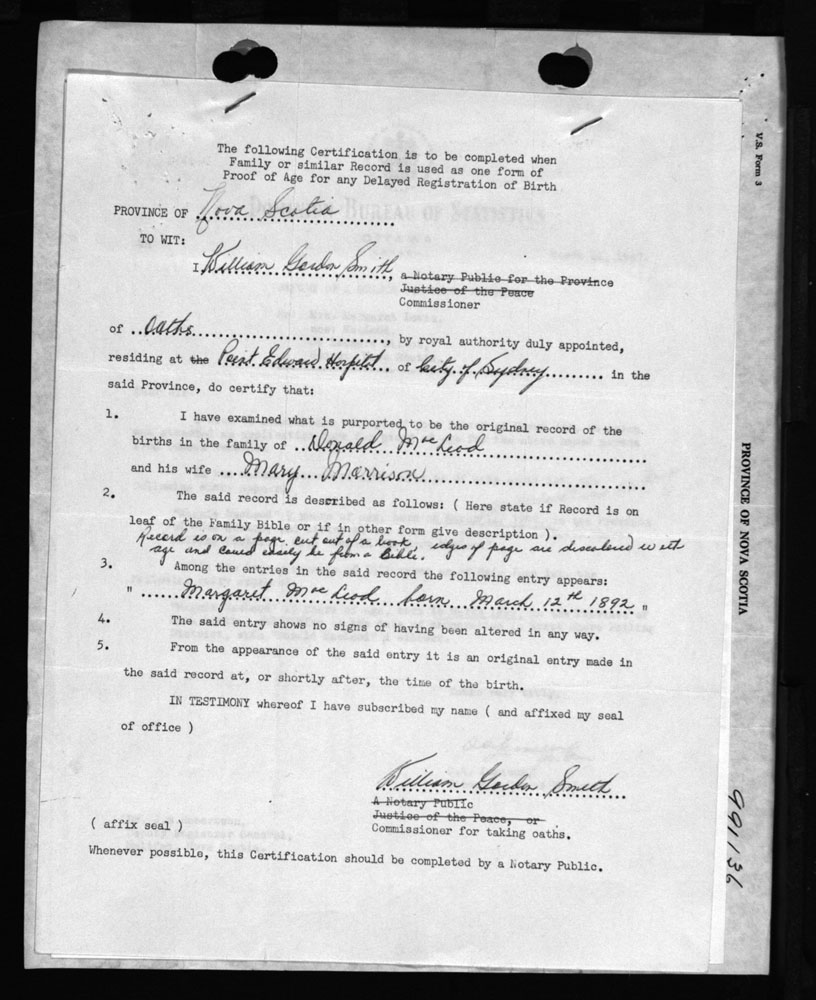 The following Certification is to be completed when
Family or similar Record is used as one form of
Proof of Age for any Delayed Registration of Birth
PROVINCE OF Nova Scotia
TO WIT:
I William Gordon Smith, a Notary Public for the Province
Justice of the Peace
Commissioner
of Oaths, by royal authority duly appointed,
residing at the Point Edward Hospital of City of Sydney in the
said Province, do certify that:
1. I have examined what is purported to be the original record of the
births in the family of Donald MacLeod
and his wife Mary Morrison
2. The said record is described as follows: ( Here state if Record is on
leaf of the Family Bible or if in other form give description ).
Record is on a page cut out of a book, edges of page are discolored with
age and could easily be from a Bible.
3. Among the entries in the said record the following entry appears:
" Margaret MacLeod born March 12th 1892 "
4. The said entry shows no signs of having been altered in any way.
5. From the appearance of the said entry it is an original entry made in
the said record at, or shortly after, the time of the birth.
IN TESTIMONY whereof I have subscribed my name ( and affixed my seal
of office )
William Gordon Smith
A Notary Public
Justice of the Peace, or
Commissioner for taking oaths.
( affix seal )
Whenever possible, this Certification should be completed by a Notary Public.
V.S. Form 3
PROVINCE OF NOVA SCOTIA
991136
BUREAU OF STATISTICS